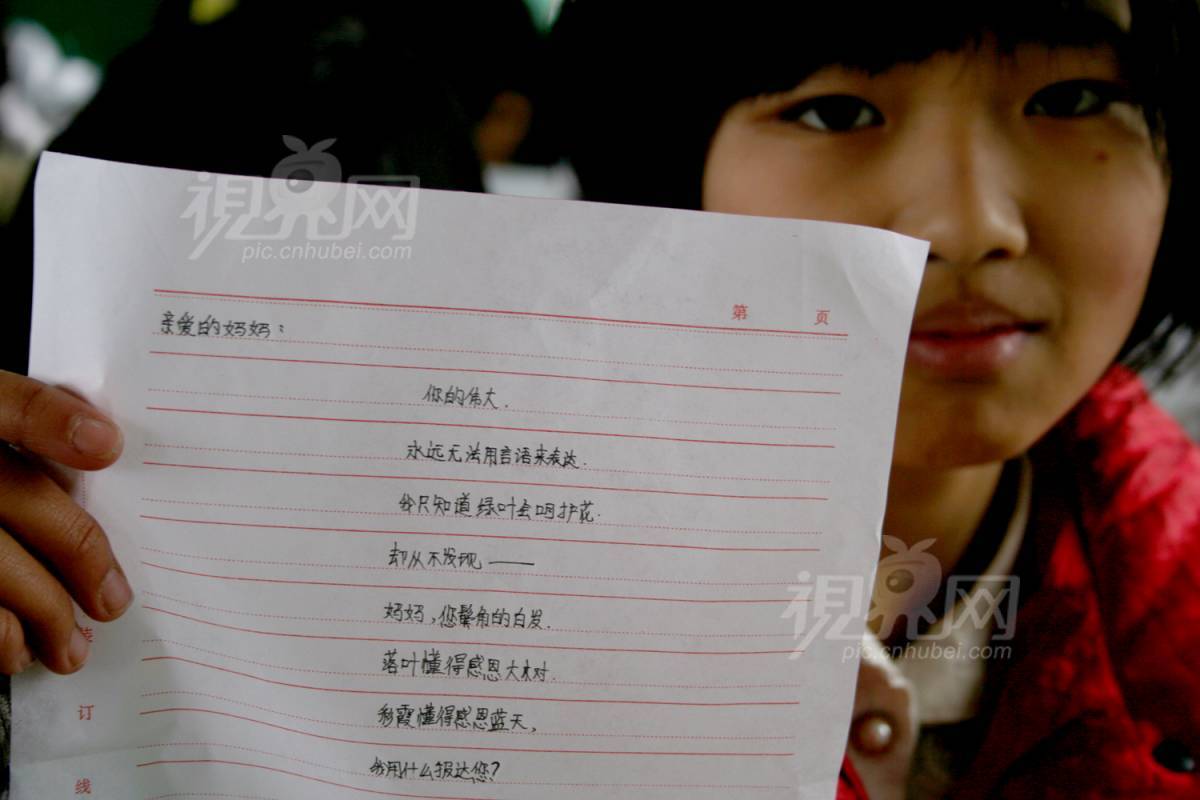 視界网
pic.cnhubei.com
第 页
亲爱的妈妈：
你的伟大.
永远无法用言语来表达.
我只知道绿叶会呵护花.
却从不发现——
妈妈,您鬓角的白发.
落叶懂得感恩大树.
彩霞懂得感恩蓝天,
我用什么报达您?
装
订
线
視界网
pic.cnhubei.com